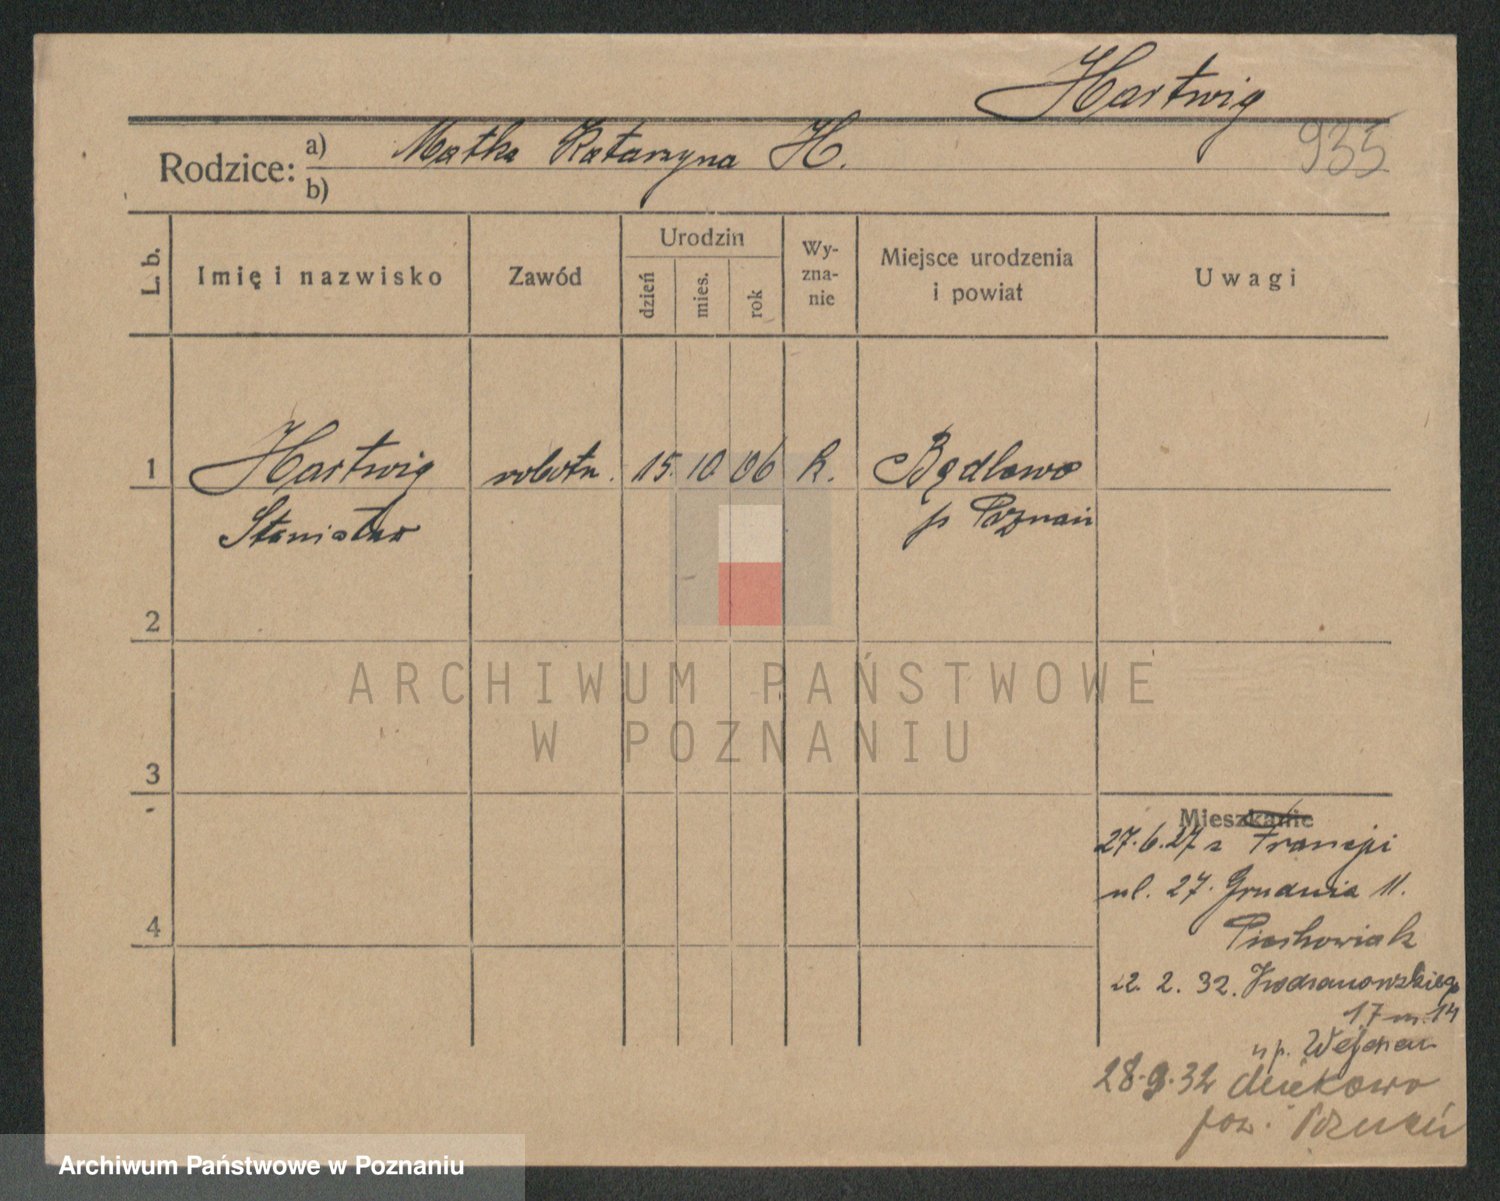 Hartwig
935
Rodzice: a) Matka Katarzyna H.
b)
L. b.
Imię i nazwisko
Zawód
Urodzin
dzień
mies.
rok
Wy-
zna-
nie
Miejsce urodzenia
i powiat
Uwagi
1 Hartwig robotn. 15. 10 06 k. Będlewo
Stanisław p Poznań
2
3
4
Mieszkanie
27.6.27 z Francji
ul. 27. Grudnia 11.
Piechowiak
2. 32.
17 m. 14
u p.
28.9.32
pow. Poznań
ARCHIWUM PAŃSTWOWE
W POZNANIU
Archiwum Państwowe w Poznaniu